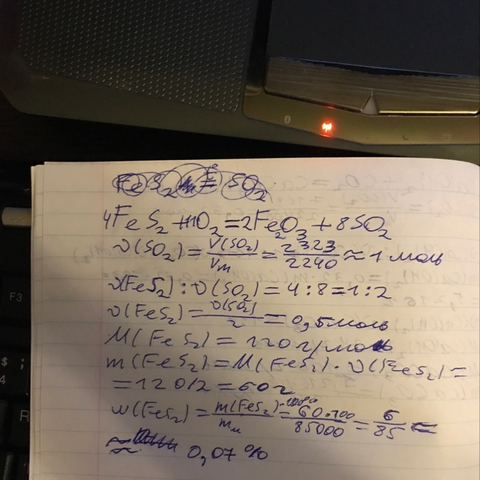 4FeS₂+11O₂=2Fe₂O₃+8SO₂
ν(SO₂)=V(SO₂)/Vm=2323/2240≈1 моль
ν(FeS₂):ν(SO₂)=4:8=1:2
ν(FeS₂)=ν(SO₂)/2=0,5моль
M(FeS₂)=120г/моль
m(FeS₂)=M(FeS₂)·ν(FeS₂)=
=120/2=60г
ω(FeS₂)=m(FeS₂)/mм=60·100/85000=6/85≈
≈ 0,07%
F3
$
4
R